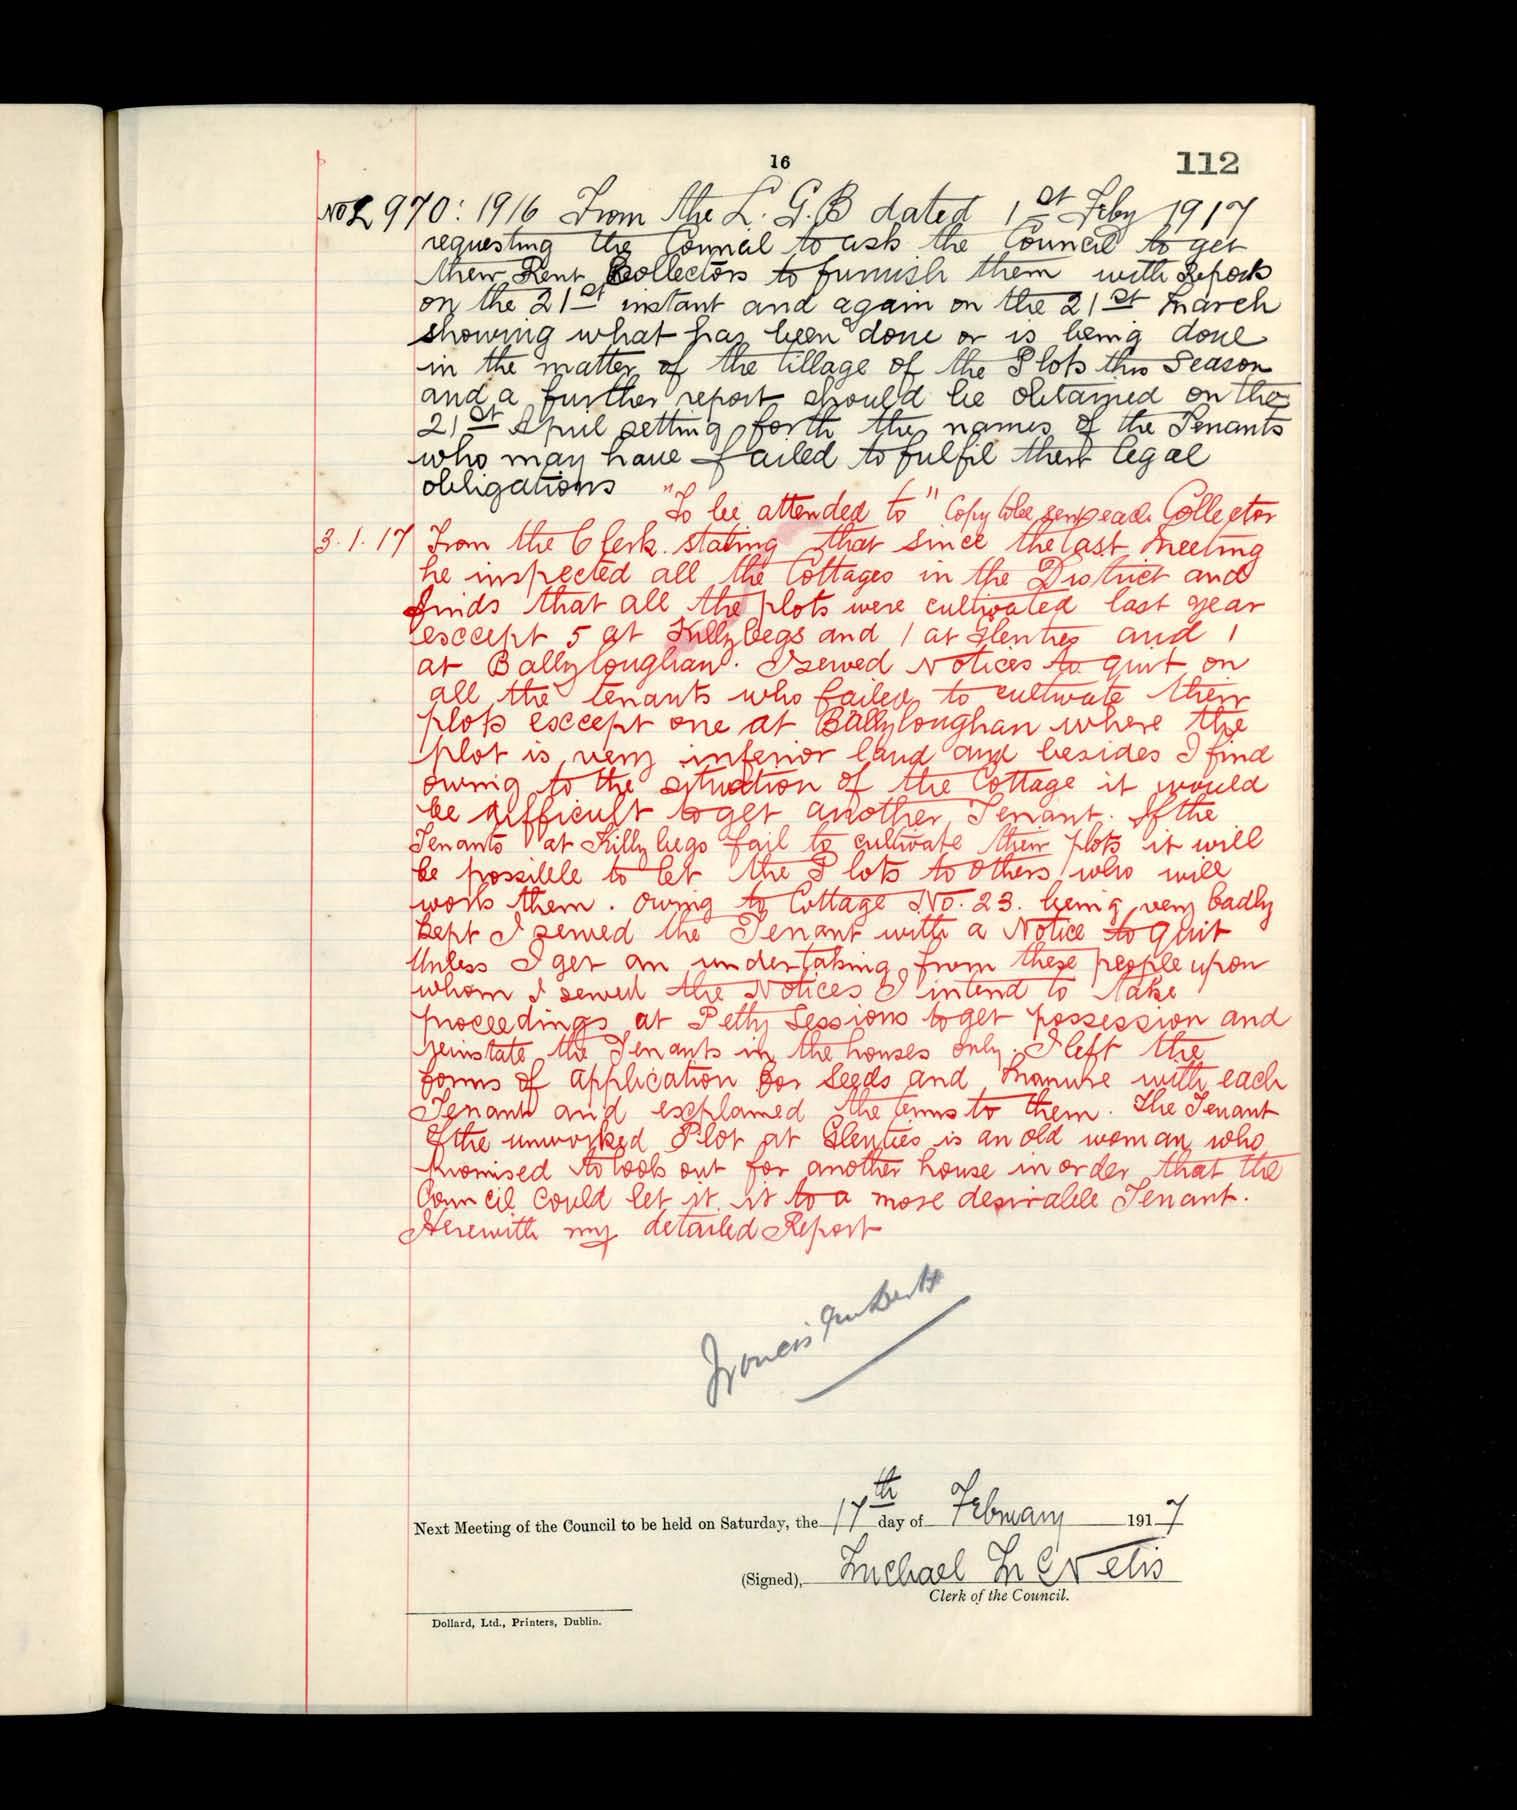 16
112
No L 970: 1916 From the L. G. B dated 1st Feby 1917
requesting the Council to ask the Council to get
their Rent Collectors to furnish them with Reports
on the 21st instant and again on the 21st March
showing what has been done or is being done
in the matter of the tillage of the Plots this Season
and a further report should be obtained on the
21st April setting forth the names of the Tenants
who may have failed to fulfil their legal
obligations
"To be attended to" Copy to be sent each Collector
3.1.17 From the Clerk. stating that since the last Meeting
he inspected all the Cottages in the District and
finds that all the plots were cultivated last year
esccept 5 at Killybegs and 1 at Glenties and 1
at Ballyloughan. I served Notices to quit on
all the tenants who failed to cultivate their
plots esccept one at Ballyloughan where the
plot is very inferior land and besides I find
owing to the situation of the Cottage it would
be difficult to get another Tenant. If the
Tenants at Killybegs fail to cultivate their plots it will
be possible to let the Plots to others who will
work them. Owing to Cottage No. 23. being very badly
kept I served the Tenant with a Notice to quit
Unless I get an undertaking from these people upon
whom I served the Notices I intend to take
proceedings at Petty Sessions to get possession and
reinstate the Tenants in the houses only. I left the
forms of application for Seeds and Manure with each
Tenant and esxplained the terms to them. The Tenant
of the unworked Plot at Glenties is an old woman who
promised to look out for another house in order that the
Council could let it it to a more desirable Tenant.
Herewith my detailed Report
Francis
Next Meeting of the Council to be held on Saturday, the 17th day of February 1917
(Signed), Michael McNelis
Clerk of the Council.
Dollard, Ltd., Printers, Dublin.